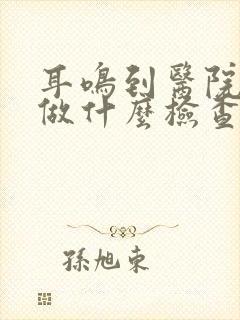 耳鳴到醫院
做什麼檢查
孫旭東